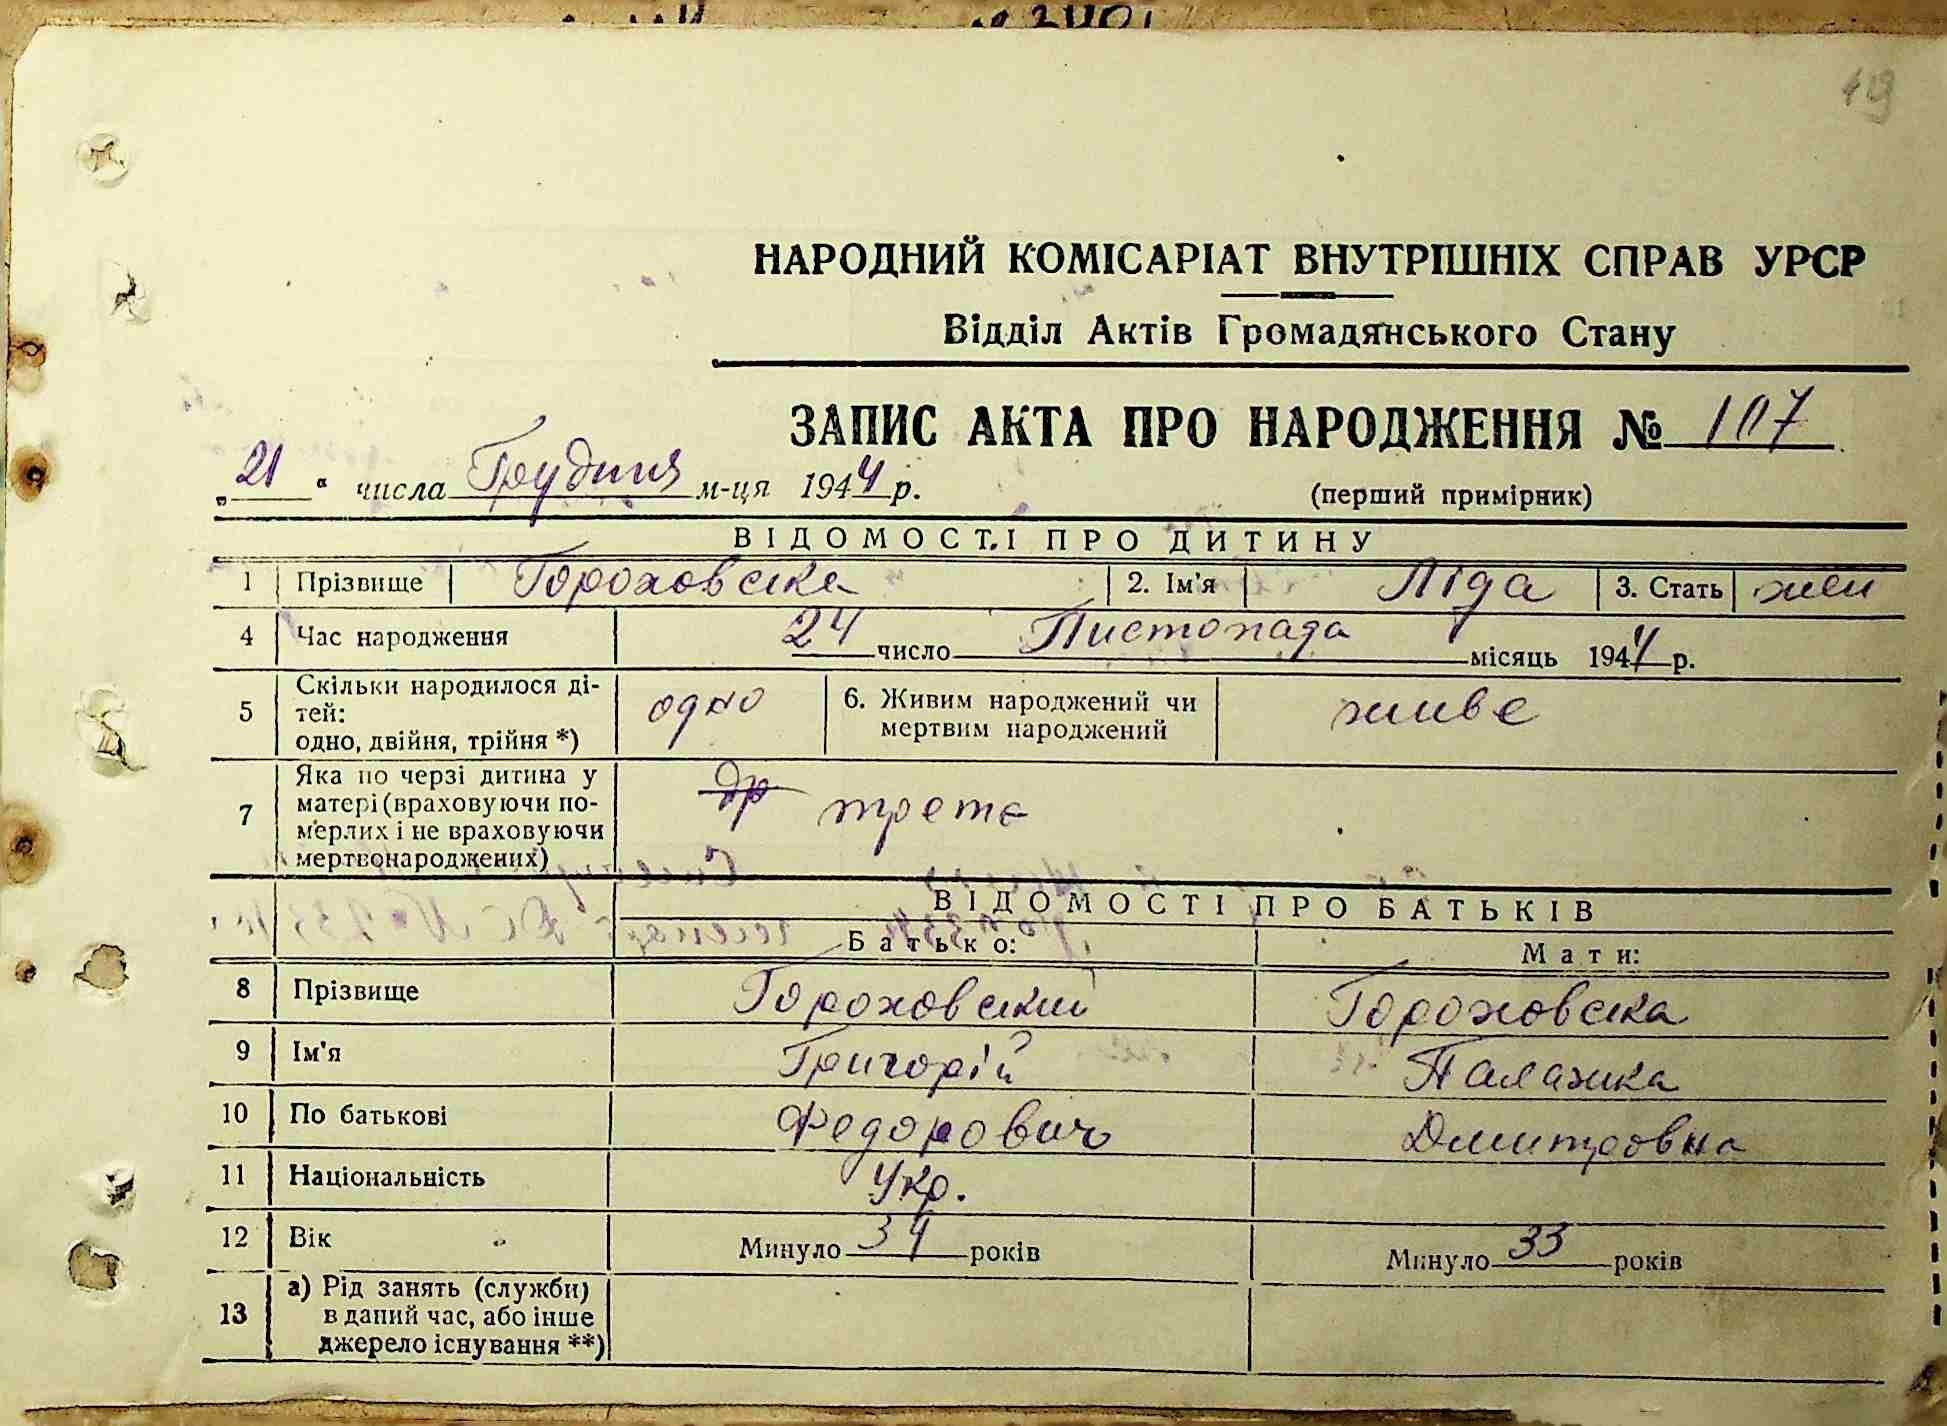 НАРОДНИЙ КОМІСАРІАТ ВНУТРІШНІХ СПРАВ УРСР
Відділ Актів Громадянського Стану
ЗАПИС АКТА ПРО НАРОДЖЕННЯ № 107
„21“ числа Грудня м-ця 1944 р. (перший примірник)
ВІДОМОСТІ ПРО ДИТИНУ
1 Прізвище Гороховска 2. Ім'я Ліда 3. Стать жен
4 Час народження 24 число Листопада місяць 1944 р.
5 Скільки народилося ді-
тей:
одно, двійня, трійня *) одно 6. Живим народжений чи
мертвим народжений живе
7 Яка по черзі дитина у
матері (враховуючи по-
мерлих і не враховуючи
мертвонароджених) др третє
ВІДОМОСТІ ПРО БАТЬКІВ
Батько: Мати:
8 Прізвище Гороховский Гороховска
9 Ім'я Григорій Палажка
10 По батькові Федорович Дмитровна
11 Національність Укр.
12 Вік Минуло 34 років Минуло 33 років
13 а) Рід занять (служби)
в даний час, або інше
джерело існування **)